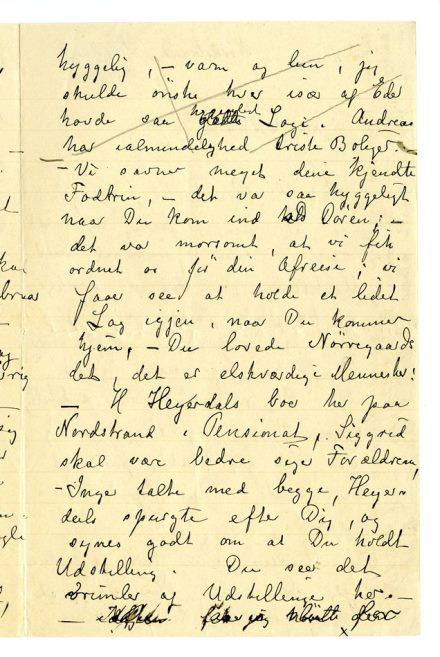 hyggelig, – varm og lun, jeg
skulde ønske hver især af Eder
havde saa hyggeligt Logi. Andreas
har ialmindelighed triste Boliger. –
– Vi savner meget dine kjendte
Fodtrin, – det var saa hyggeligt
naar Du kom ind Døren; –
det var morsomt, at vi fik
ordnet os før din Afreise; vi
faar see at holde et lidet
Lag igjen, naar Du kommer
hjem, – Du lovede Nörregaards
det, det er elskværdige Mennesker!
– H Heyerdals boe her paa
Nordstrand i Pensionat, Siggrid
skal være bedre sige Forældrene,
– Inger talte med begge, Heyer-
dals spurgte efter Dig, og
synes godt om at Du holdt
Udstilling. Du seer det
vrimler af Udstillinge her. –
– før jeg